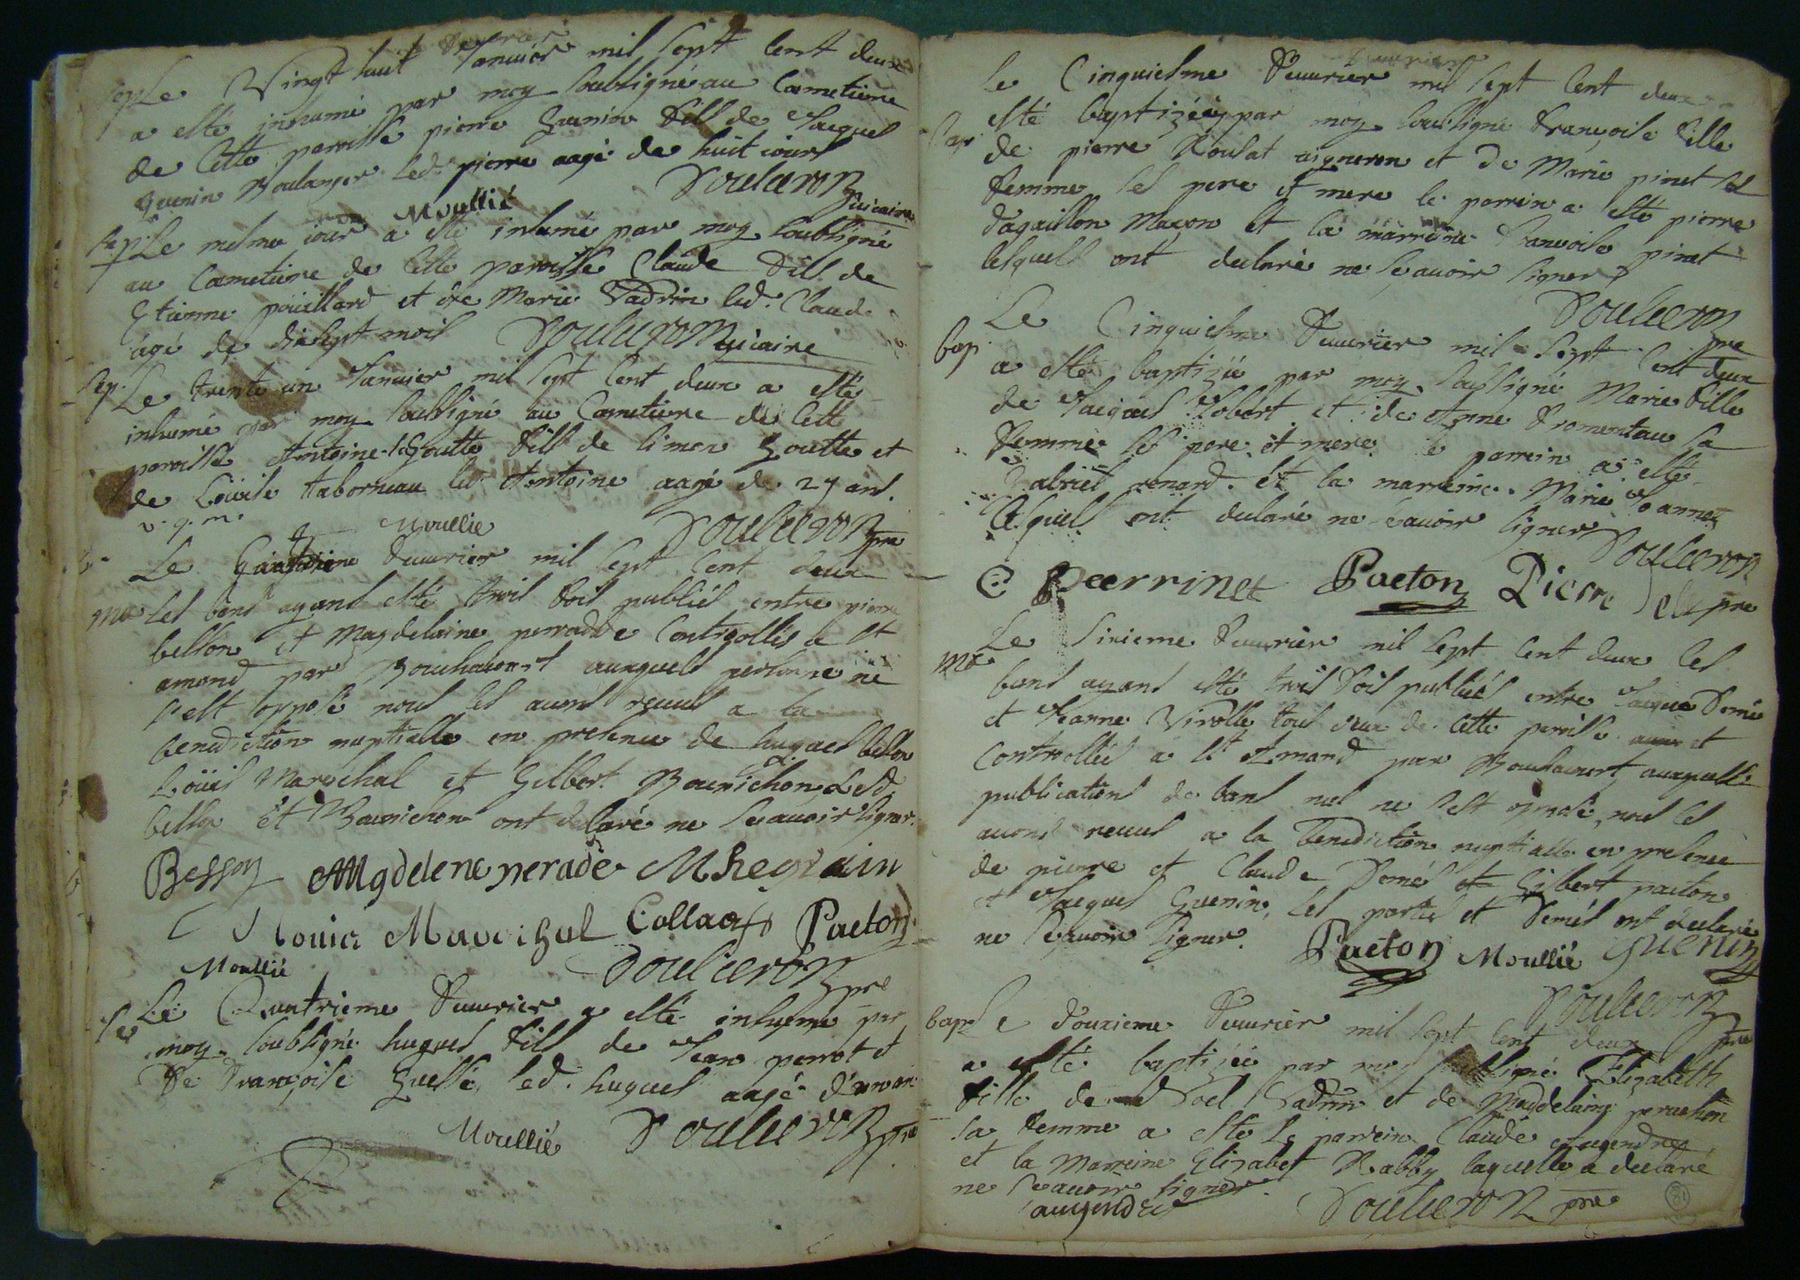 sep Le Vingt huit Januier mil sept cent deux
a esté inhumé par moy soubsigné au Cemetiere
de Cette paroisse pierre Guenin fils de Jacques
Guenin Boulanger led. pierre aagé de huit iours
Moullié Souliceron vicaire
sep. Le mesme iour a esté inhumé par moy soubsigné
au Cemetiere de Cette paroisse Claude fils de
Etienne pouillard et de Marie Vadrin led. Claude
agé de dix sept mois Souliceron vicaire
sep. Le trente un Januier mil sept cent deux a esté
inhumé par moy soubsigné au Cemetiere de Cette
paroisse Antoine Goutte fils de simon Goutte et
de Loüise taborneau led. Antoine aagé de 24 ans.
v. q. m. Moullie Souliceron pre
Le feuurier mil sept cent deux
ma Les bans ayans esté trois fois publiés entre pierre
besson et Magdelaine peradde Controollés a St
amand par Bouchauart auxquels personne ne
s'est opposé nous les auons receus a la
benediction nuptialle en presence de hugues besson
Loüis Marechal et Gilbert Baunichon Led.
besson et Baunichon ont declaré ne scauoir signer.
Besson Magdelene perade M hegrain
Louis Marichal Collaas Paeton
Moullié Souliceron pre
se Le Quatrieme feuurier a esté inhumé par
moy soubsigné hugues fils de Jean perrot et
de françoise Guesse led. hugues aagé d'un an
Moullié Souliceron pre
Le Cinquiesme feuurier mil sept cent deux
bap esté baptizée par moy soubsigné françoise fille
de pierre Roulat uigneron et de Marie pinet sa
femme ses pere et mere le parrein a esté pierre
dagaillon Maçon et la marreine francoise pinet
lesquels ont declaré ne scauoir signer
Souliceron pre
Le Cinquiesme feuurier mil sept cent deux
bap a esté baptizée par moy soussigné Marie fille
de Jacques Robert et de Anne fromenteau sa
femme ses pere et mere le parrein a esté
Gabriel renard et la marreine Marie Joannet
lesquels ont declaré ne scauoir signer
Souliceron pre
C Peerrinet Paeton Pierre
Le sixieme feuurier mil sept cent deux les
ma bans ayans esté trois fois publiés entre Jacques Demé
et Jeanne Virolle tous deux de cette paroisse et
Controllés a St Amand par Bouchauart auxquelles
publications de bans nul ne s'est opposé, nous les
auons receus a la benediction nuptialle en presence
de pierre et Claude Demés et Gilbert paeton
et Jacques Guenin, les parties et Demés ont declaré
ne scauoir signer. Paeton Moullié Guenin
Souliceron pre
bap Le douzieme feuurier mil sept cent deux
a esté baptizée par moy soubsigné Elizabeth
fille de Noel Vadrin et de Magdelaine peruchon
sa femme a esté Le parrein Claude auxendre
et la Marreine Elizabet Rabby laquelle a declaré
ne scauoir signer
Souliceron pre
81